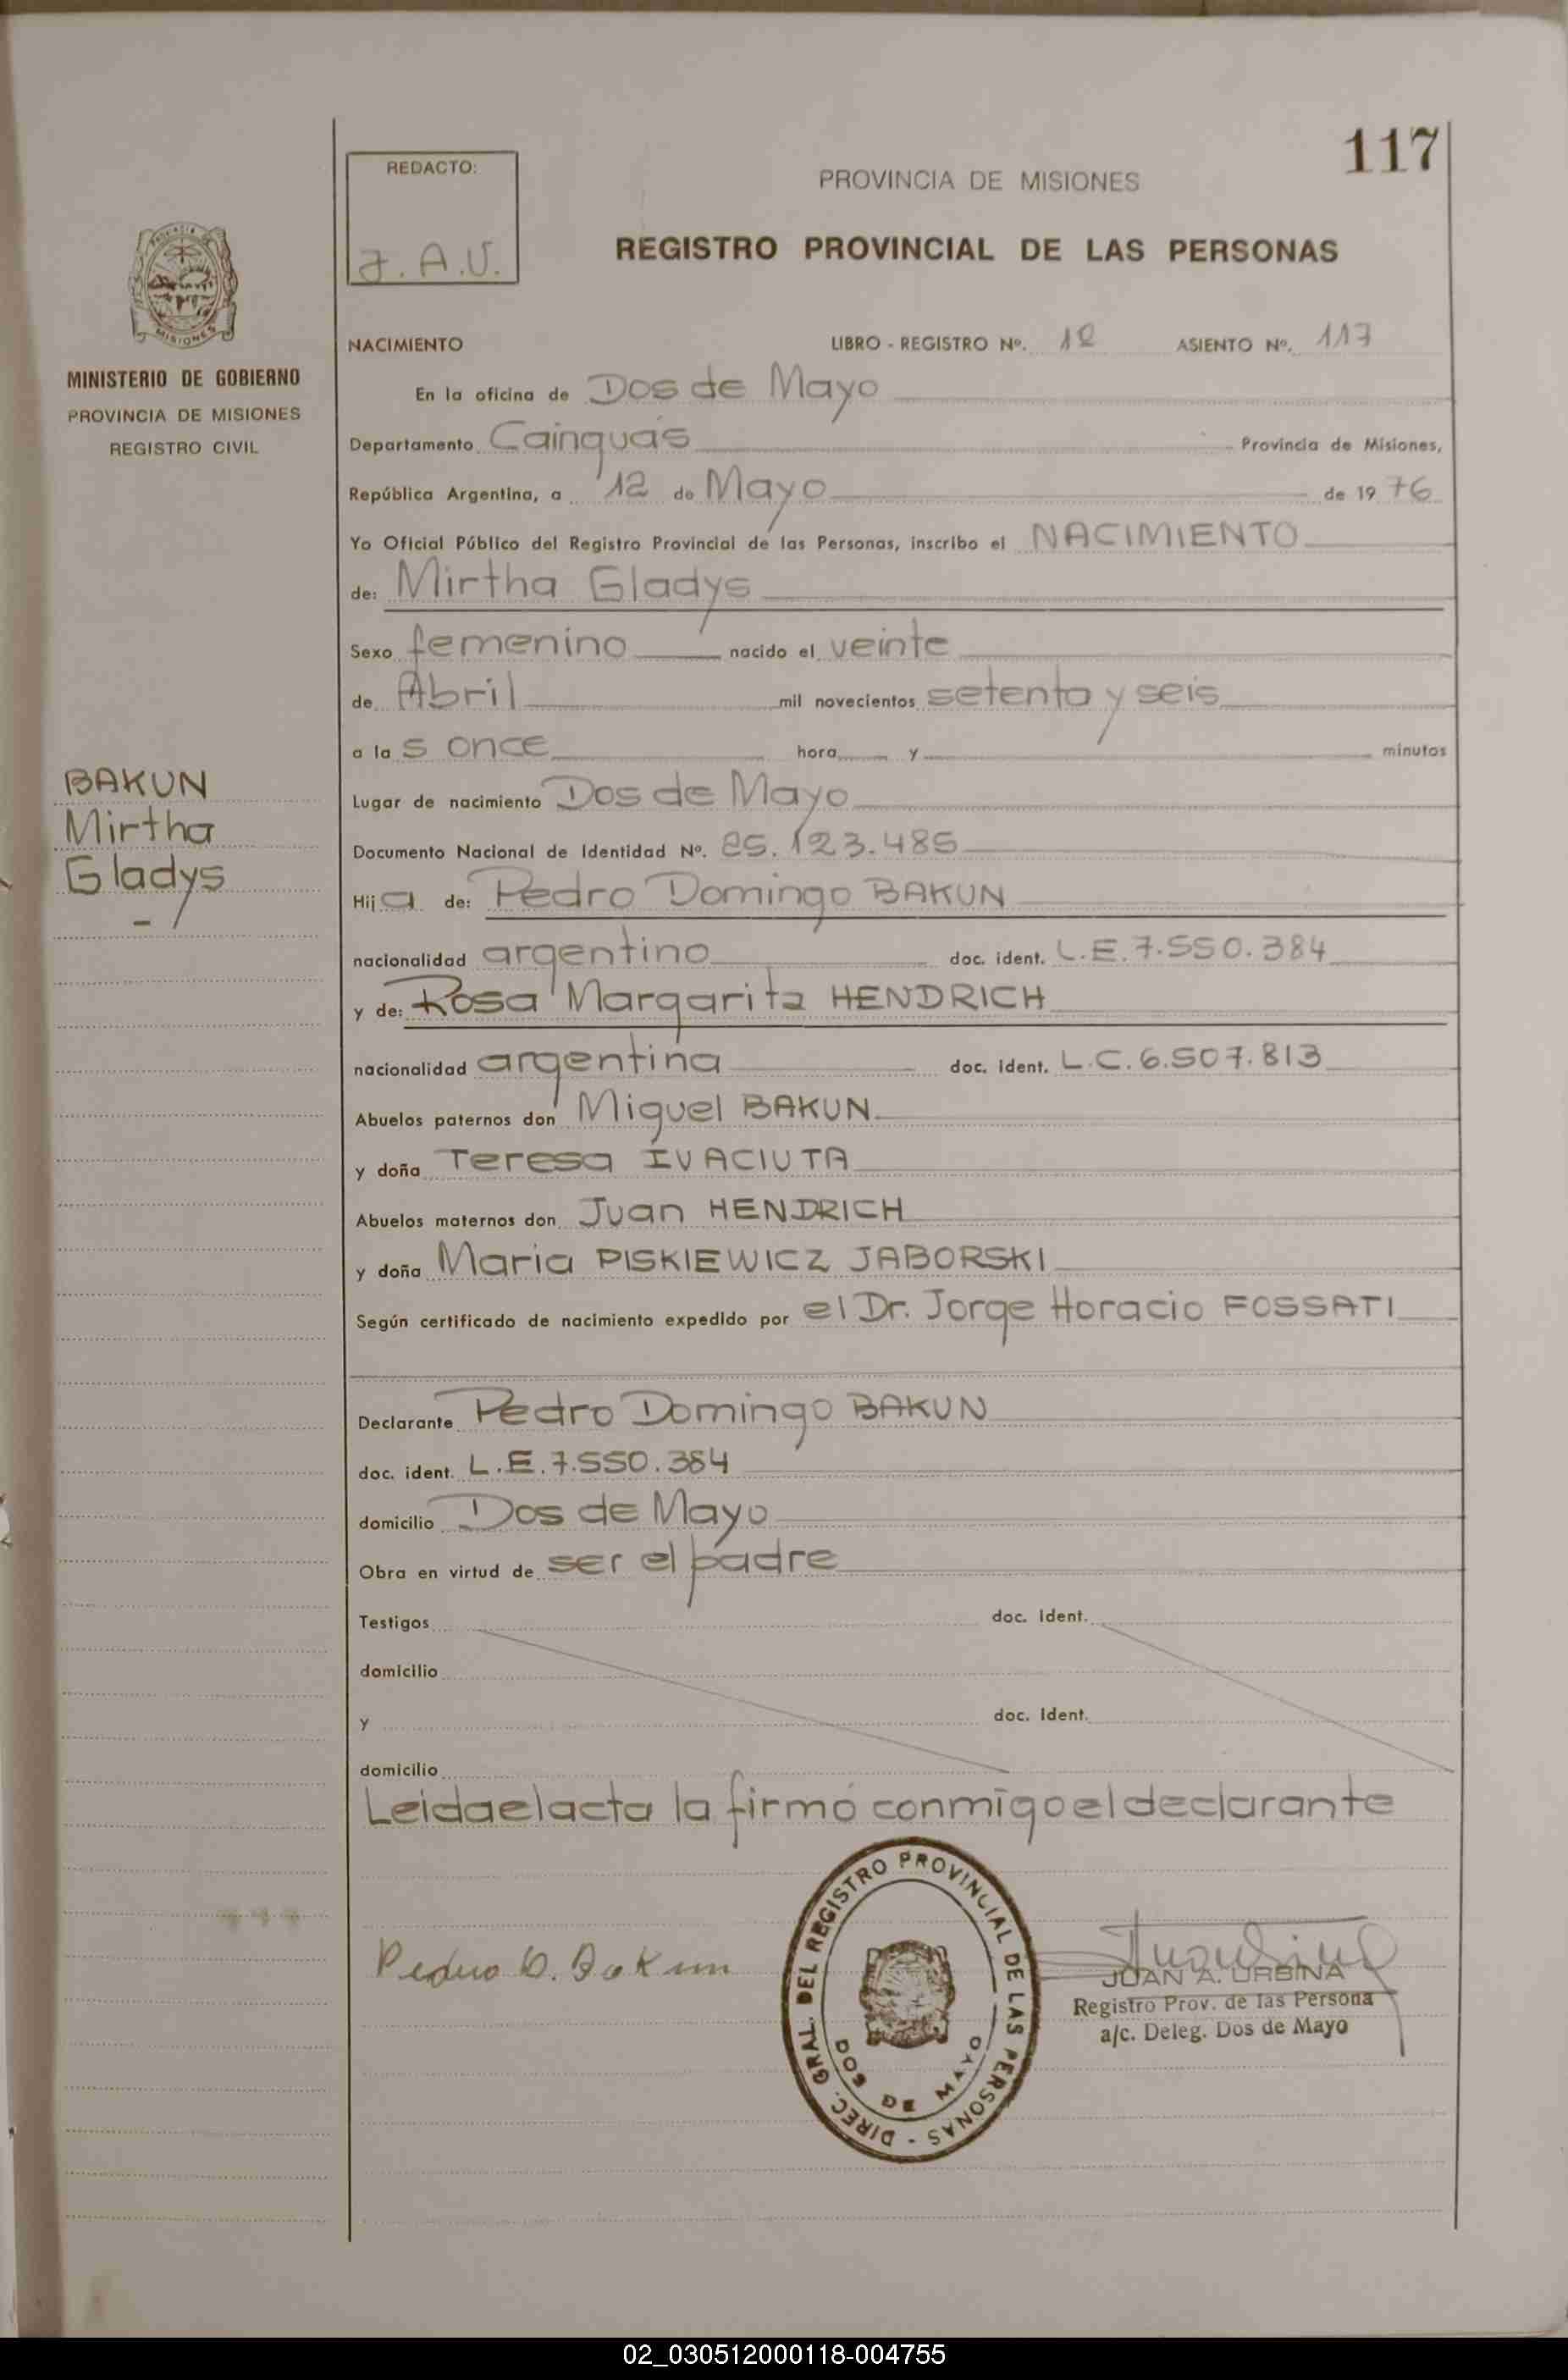 117
REDACTO:
J.A.U.
PROVINCIA DE MISIONES
REGISTRO PROVINCIAL DE LAS PERSONAS
MISIONES
MINISTERIO DE GOBIERNO
PROVINCIA DE MISIONES
REGISTRO CIVIL
BAKUN
Mirtha
Gladys
NACIMIENTO LIBRO - REGISTRO Nº. 12 ASIENTO Nº. 117
En la oficina de Dos de Mayo
Departamento Cainguás Provincia de Misiones,
República Argentina, a 12 de Mayo de 1976
Yo Oficial Público del Registro Provincial de las Personas, inscribo el NACIMIENTO
de: Mirtha Gladys
Sexo femenino nacido el veinte
de Abril mil novecientos setenta y seis
a las once hora y minutos
Lugar de nacimiento Dos de Mayo
Documento Nacional de Identidad Nº. 25.123.485
Hija de: Pedro Domingo BAKUN
nacionalidad argentino doc. ident. L.E.7.550.384
y de: Rosa Margarita HENDRICH
nacionalidad argentina doc. ident. L.C.6.507.813
Abuelos paternos don Miguel BAKUN
y doña Teresa IVACIUTA
Abuelos maternos don Juan HENDRICH
y doña Maria PISKIEWICZ JABORSKI
Según certificado de nacimiento expedido por el Dr. Jorge Horacio FOSSATI
Declarante Pedro Domingo BAKUN
doc. ident. L.E.7.550.384
domicilio Dos de Mayo
Obra en virtud de ser el padre
Testigos doc. ident.
domicilio
y doc. ident.
domicilio
Leida el acta la firmó conmigo el declarante
Pedro D. Bakun
DIREC. GRAL. DEL REGISTRO PROVINCIAL DE LAS PERSONAS -
DOS DE MAYO
JUAN A. URBINA
Registro Prov. de las Persona
a/c. Deleg. Dos de Mayo
02_030512000118-004755